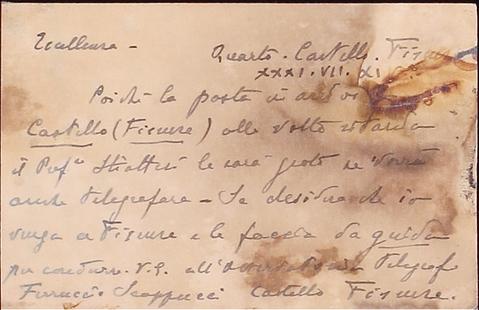 Eccellenza -
Quarto. Castello. Firen
XXXI. VII. XI
Poichè la posta in
Castello (Firenze) alle volte ritarda
il Prof. le sarà grato se vorrà
anche telegrafare - Se desidera che io
venga a Firenze e le faccia da guida
per condurre V. S. all'Osservatorio telegraf
Ferruccio Scappucci Castello Firenze.